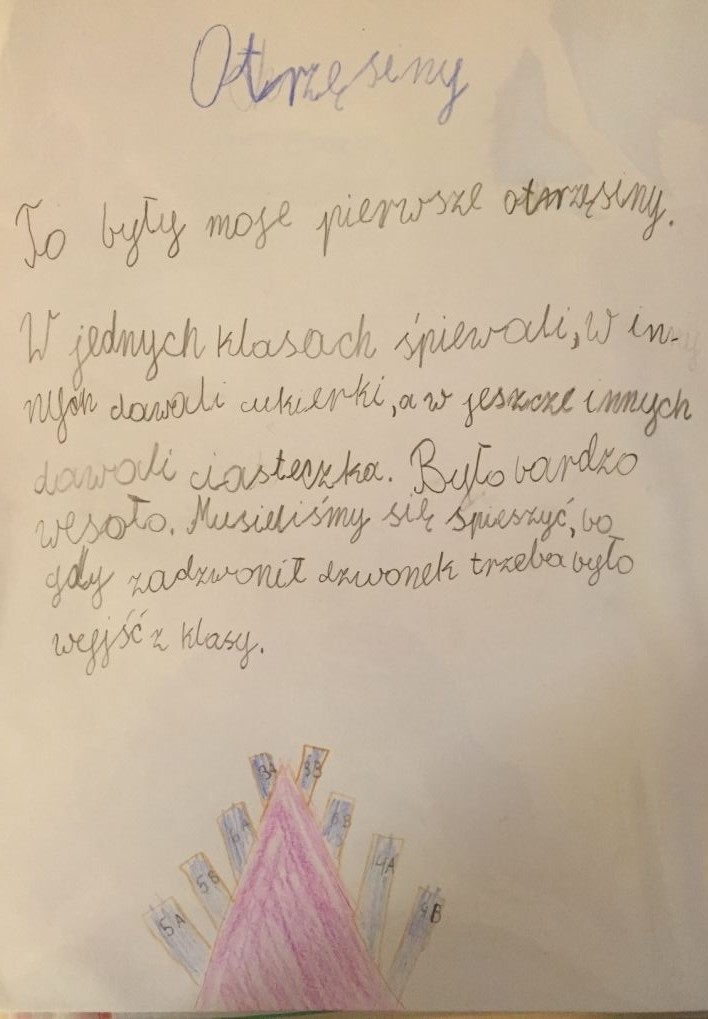 Otrzęsiny
To były moje pierwsze otrzęsiny.
W jednych klasach śpiewali, w in-
nych dawali cukierki, a w jeszcze innych
dawali ciasteczka. Było bardzo
wesoło. Musieliśmy się śpieszyć, bo
gdy zadzwonił dzwonek trzeba było
wyjść z klasy.
3A 3B
6A 6B
5B 4A
5A 4B